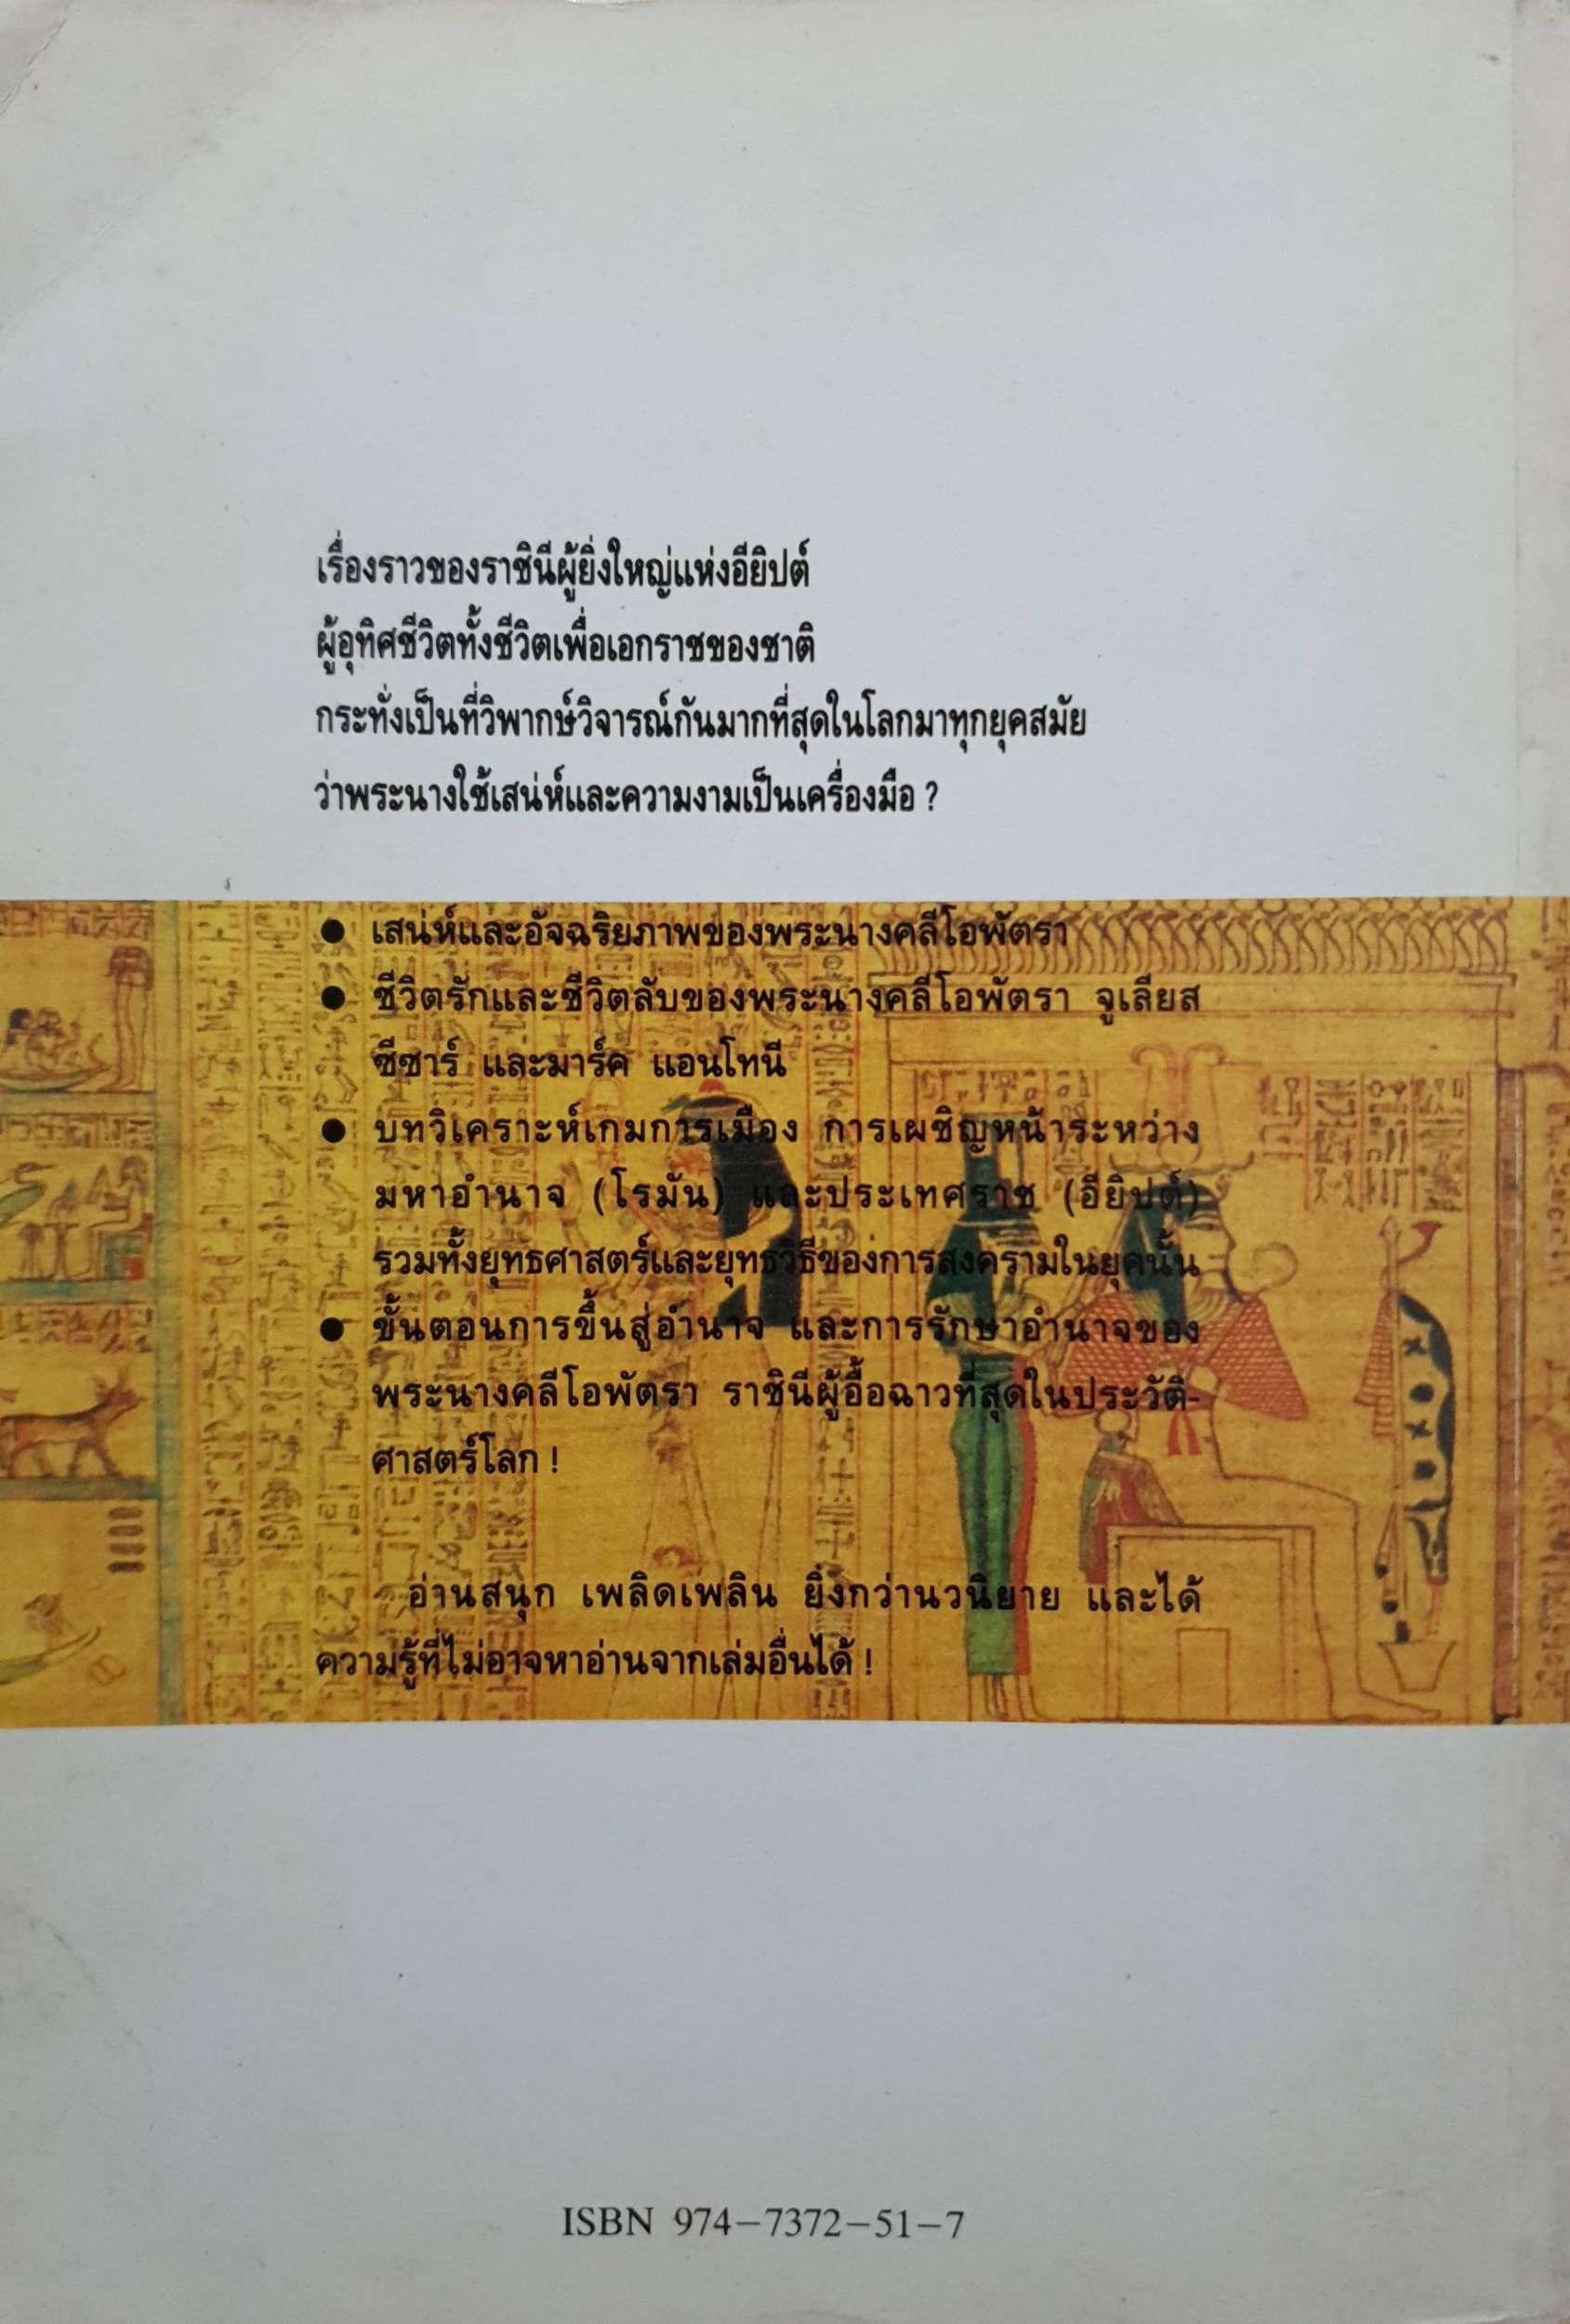 เรื่องราวของราชินีผู้ยิ่งใหญ่แห่งอียิปต์
ผู้อุทิศชีวิตทั้งชีวิตเพื่อเอกราชของชาติ
กระทั่งเป็นที่วิพากษ์วิจารณ์กันมากที่สุดในโลกมาทุกยุคสมัย
ว่าพระนางใช้เสน่ห์และความงามเป็นเครื่องมือ ?
● เสน่ห์และอัจฉริยภาพของพระนางคลีโอพัตรา
● ชีวิตรักและชีวิตลับของพระนางคลีโอพัตรา จูเลียส
ซีซาร์ และมาร์ค แอนโทนี
● บทวิเคราะห์เกมการเมือง การเผชิญหน้าระหว่าง
มหาอำนาจ (โรมัน) และประเทศราช (อียิปต์)
รวมทั้งยุทธศาสตร์และยุทธวิธีของการสงครามในยุคนั้น
● ขั้นตอนการขึ้นสู่อำนาจ และการรักษาอำนาจของ
พระนางคลีโอพัตรา ราชินีผู้อื้อฉาวที่สุดในประวัติ-
ศาสตร์โลก !
อ่านสนุก เพลิดเพลิน ยิ่งกว่านวนิยาย และได้
ความรู้ที่ไม่อาจหาอ่านจากเล่มอื่นได้ !
ISBN 974-7372-51-7